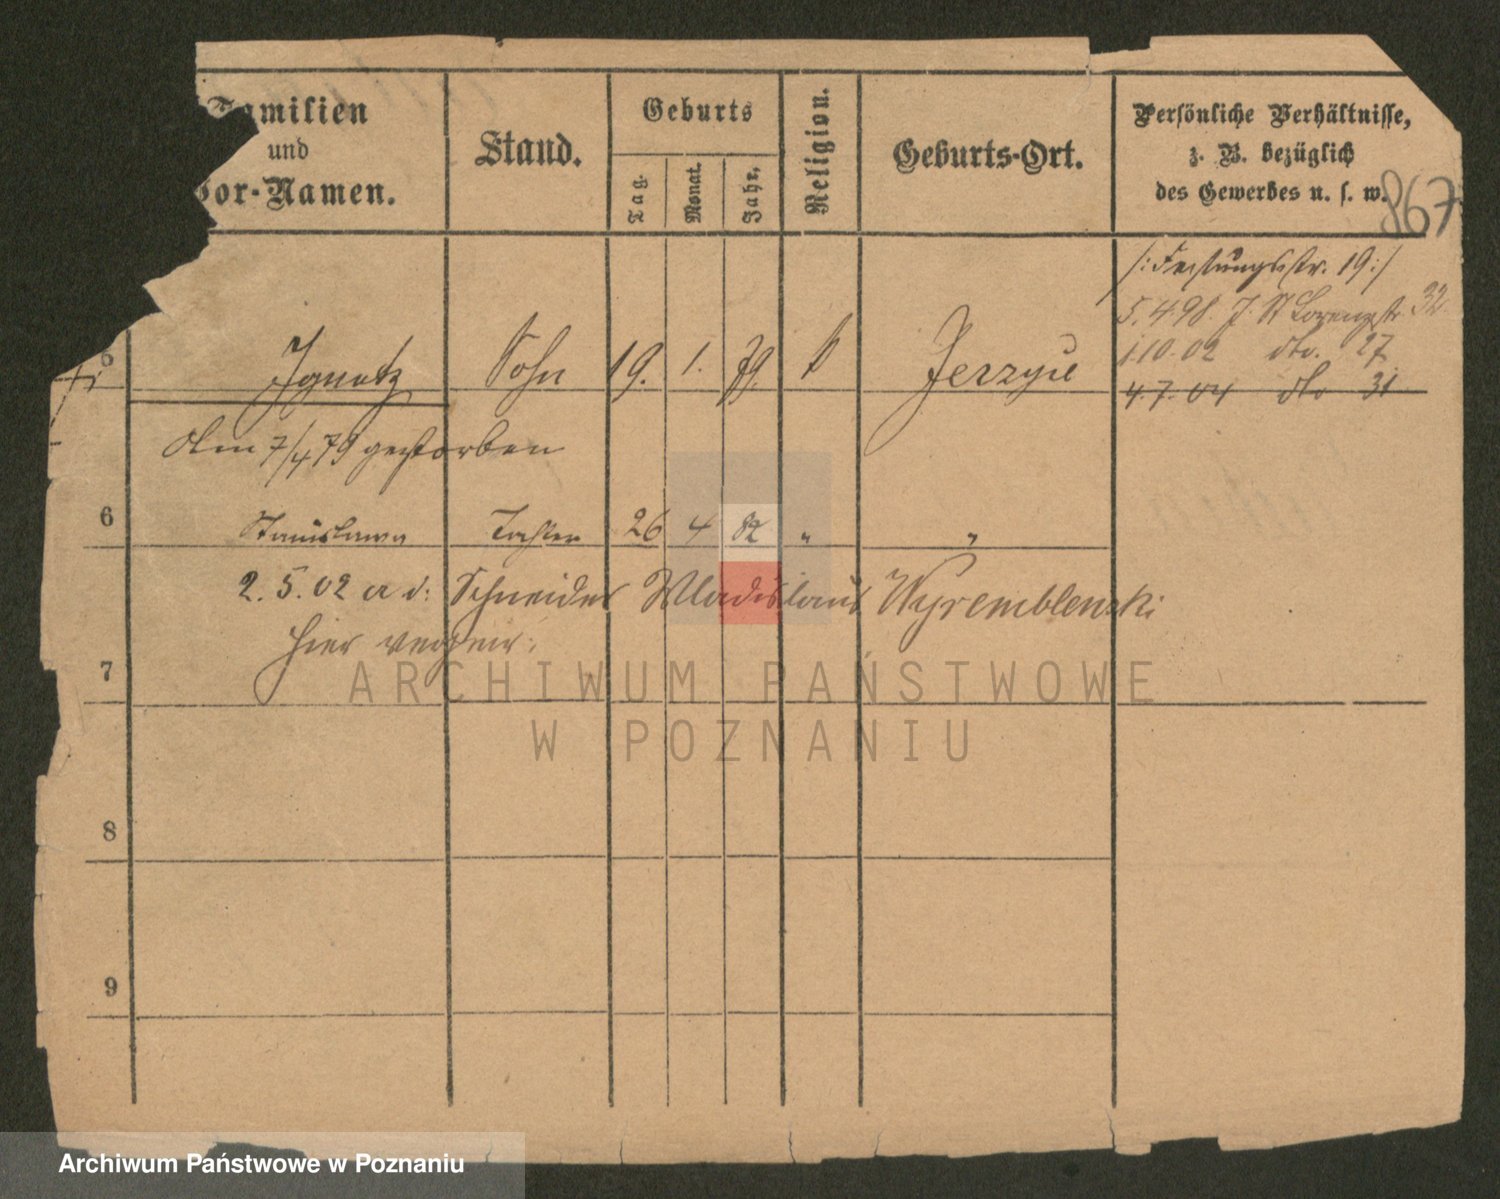 Familien
und
Vor-Namen.
Stand.
Geburts
Tag.
Monat.
Jahr.
Religion.
Geburts-Ort.
Persönliche Verhältnisse,
z. B. bezüglich
des Gewerbes u. s. w.
867
/: Festungsstr. 19 :/
5.4.98. J. St Lorenzstr. 32
1.10.02 dto. 27
4.7.04 dto 31
5 Ignatz Sohn 19. 1. 79. k Jerzyce
Am 7/4 79 gestorben
6 Stanislawa Tochter 26 4 82 " "
2.5.02 a d: Schneider Wladislaus Wyremblenski
hier verheir:
7
8
9
ARCHIWUM PAŃSTWOWE
W POZNANIU
Archiwum Państwowe w Poznaniu